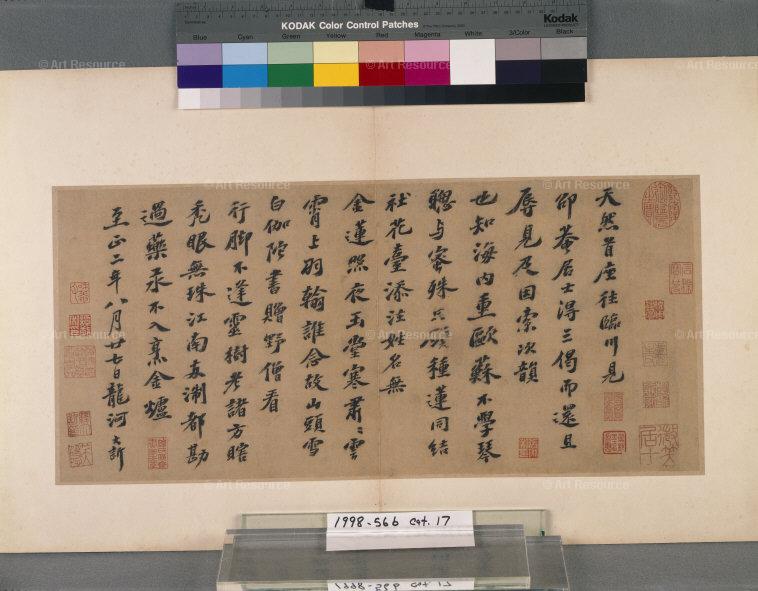 KODAK Color Control Patches
Kodak
Blue Cyan Green Yellow Red Magenta White 3/Color Black
© Art Resource
© Art Resource
© Art Resource
天然首座往臨川見
邵菴居士得三偈而還且
辱見及因索次韻
也知海內重歐蘇不學琴
聰与蜜殊 種蓮同結
社花臺添注姓名無
金蓮照夜玉堂寒肅〻雲
霄上羽翰誰念故山頭雪
白伽陁書贈野僧看
行脚不逢靈樹老諸方瞎
禿眼無珠江南 都勘
過藥汞不入烹金爐
至正二年八月廿七日龍河大訢
© Art Resource
© Art Resource
© Art Resource
© Art Resource
© Art Resource
© Art Resource
© Art Resource
1998-566 cat. 17